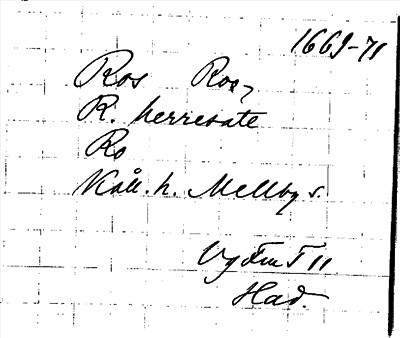 1669-71
Ros Ros,
R. herresate
Ro
Kåll. h. Mellby s.
Vg Fm T 11
Had.